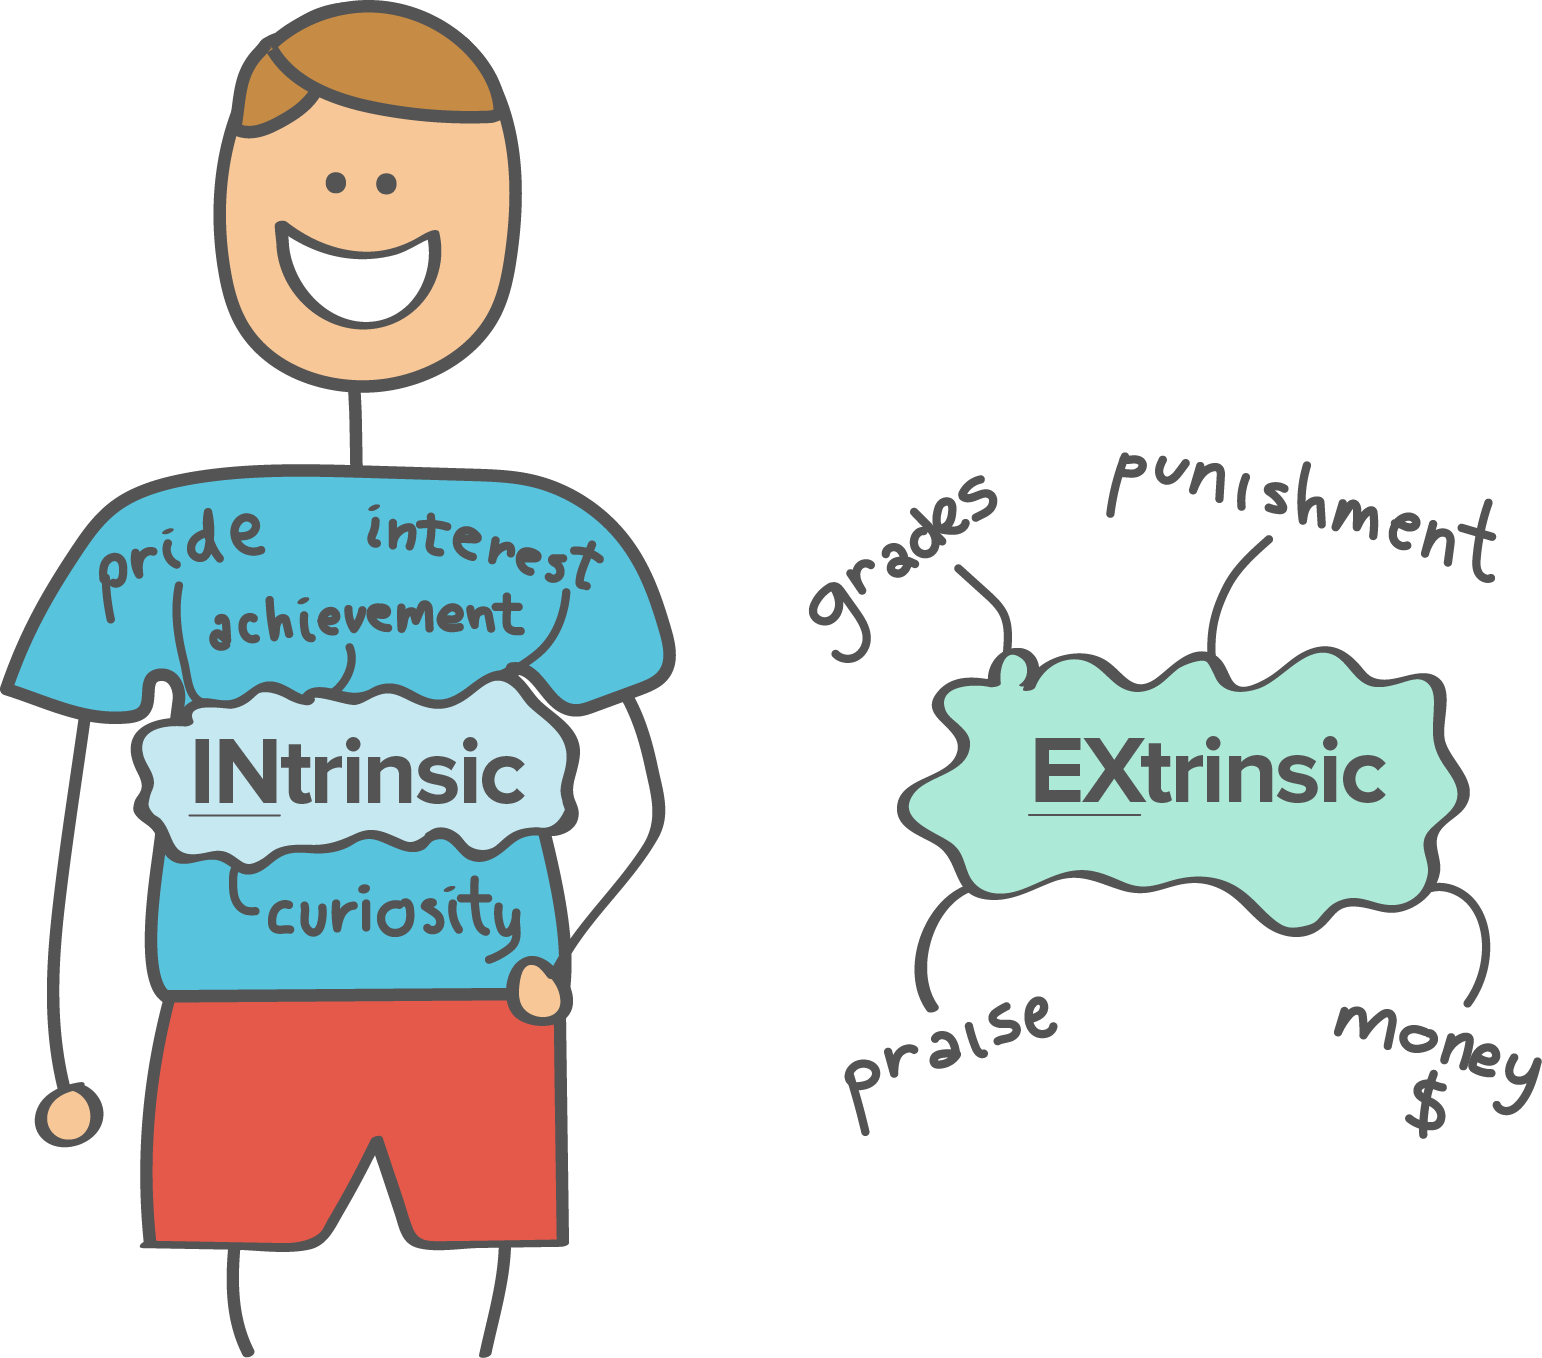 pride
interest
achievement
INtrinsic
curiosity
grades
punishment
EXtrinsic
praise
money
$